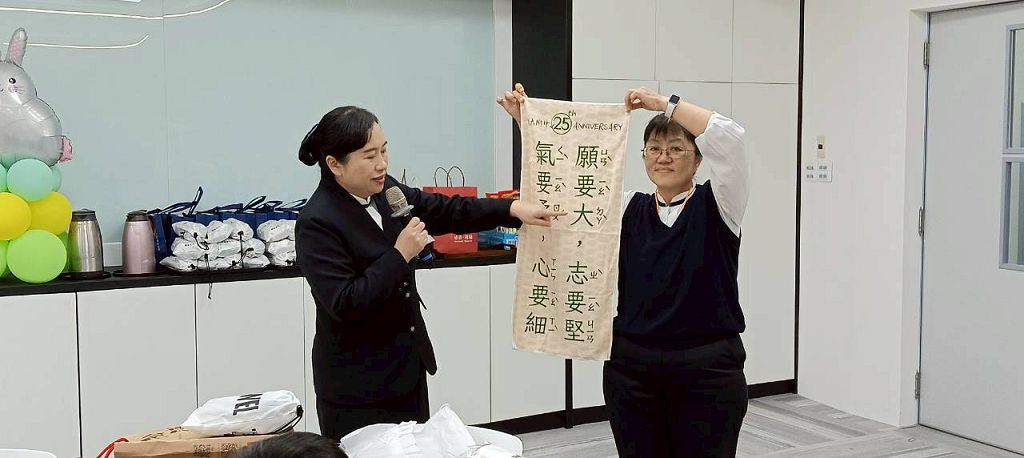 25th ANNIVERSARY
願要大，志要堅
氣要柔，心要細
WEL